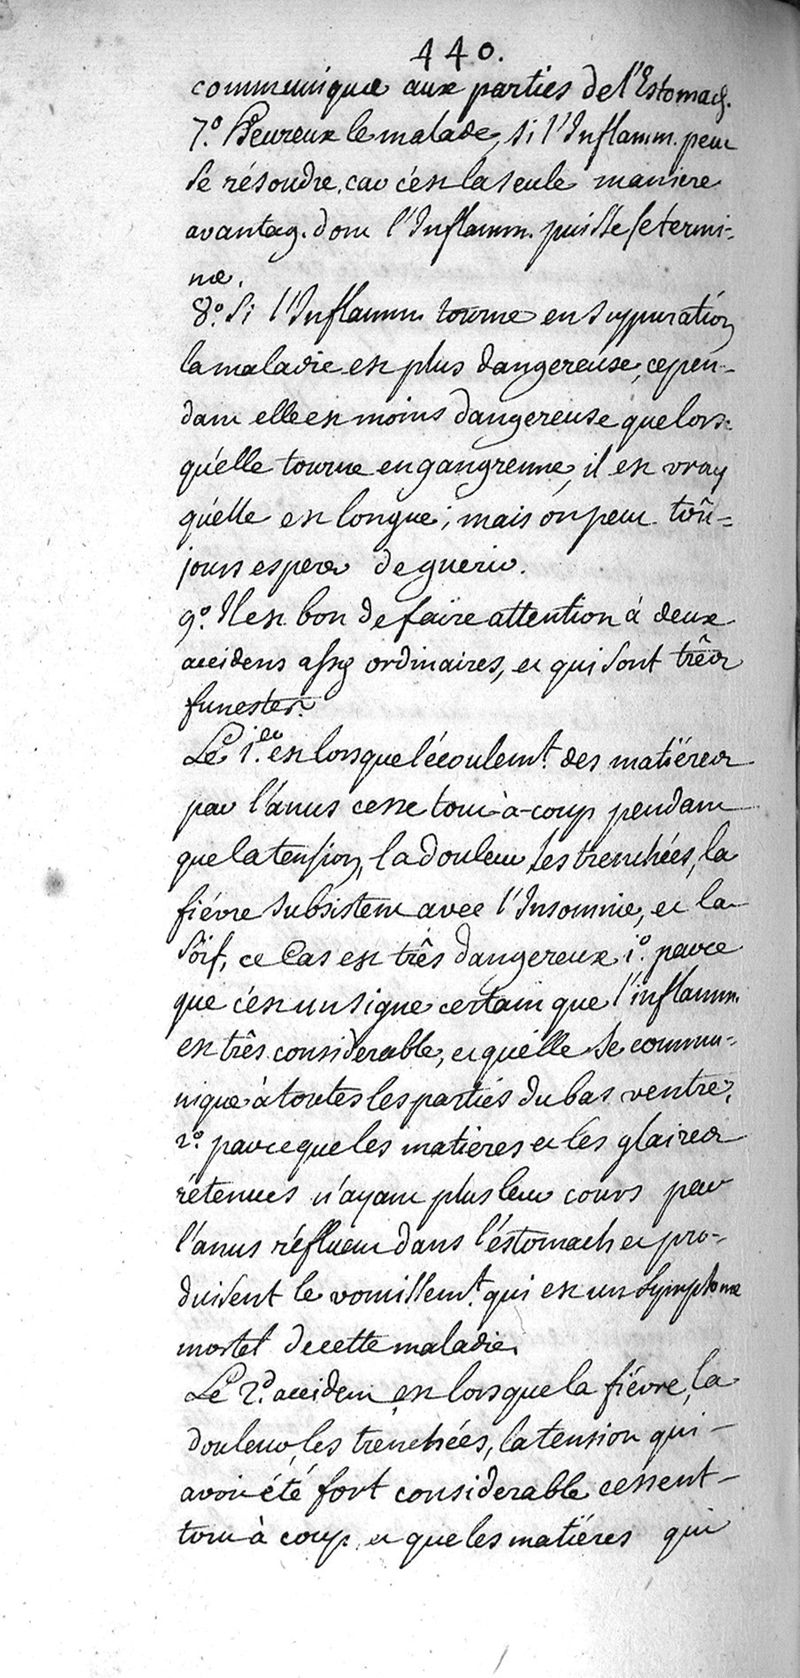 440.
communique aux parties de l'Estomach.
7.° Heureux le malade, si l'Inflamm. peut
se résoudre, car c'est la seule maniere
avantag. dont l'Inflamm. puisse se termi-
ner.
8.° Si l'Inflamm. tourne en suppuration,
la maladie est plus dangereuse, cepen-
dant elle est moins dangereuse que lors-
qu'elle tourne en gangrenne, il est vray
qu'elle est longue; mais on peut toû-
jours esperer de guerir.
9.° Il est bon de faire attention à deux
accidens assez ordinaires, et qui sont três
funestes.
Le 1.er est lorsque l'écoulemt. des matiéres
par l'anus cesse tout-à-coup pendant
que la tension, la douleur, les trenchées, la
fiévre subsistent avec l'Insomnie, et la
soif, ce Cas est três dangereux 1.° parce
que c'est un signe certain que l'inflamm.
est três considerable, et qu'elle se commu-
nique à toutes les parties du bas ventre,
2.° parce que les matières et les glaires
retenues n'ayant plus leur cours par
l'anus réfluent dans l'éstomach et pro-
duisent le vomissemt. qui est un symptome
mortel de cette maladie.
Le 2.d accident est lorsque la fiévre, la
douleur, les trenchées, la tension qui
avoit été fort considerable cessent
tout à coup, et que les matiéres qui